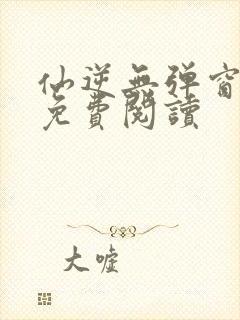 仙逆無彈窗
免費閱讀
大嘘